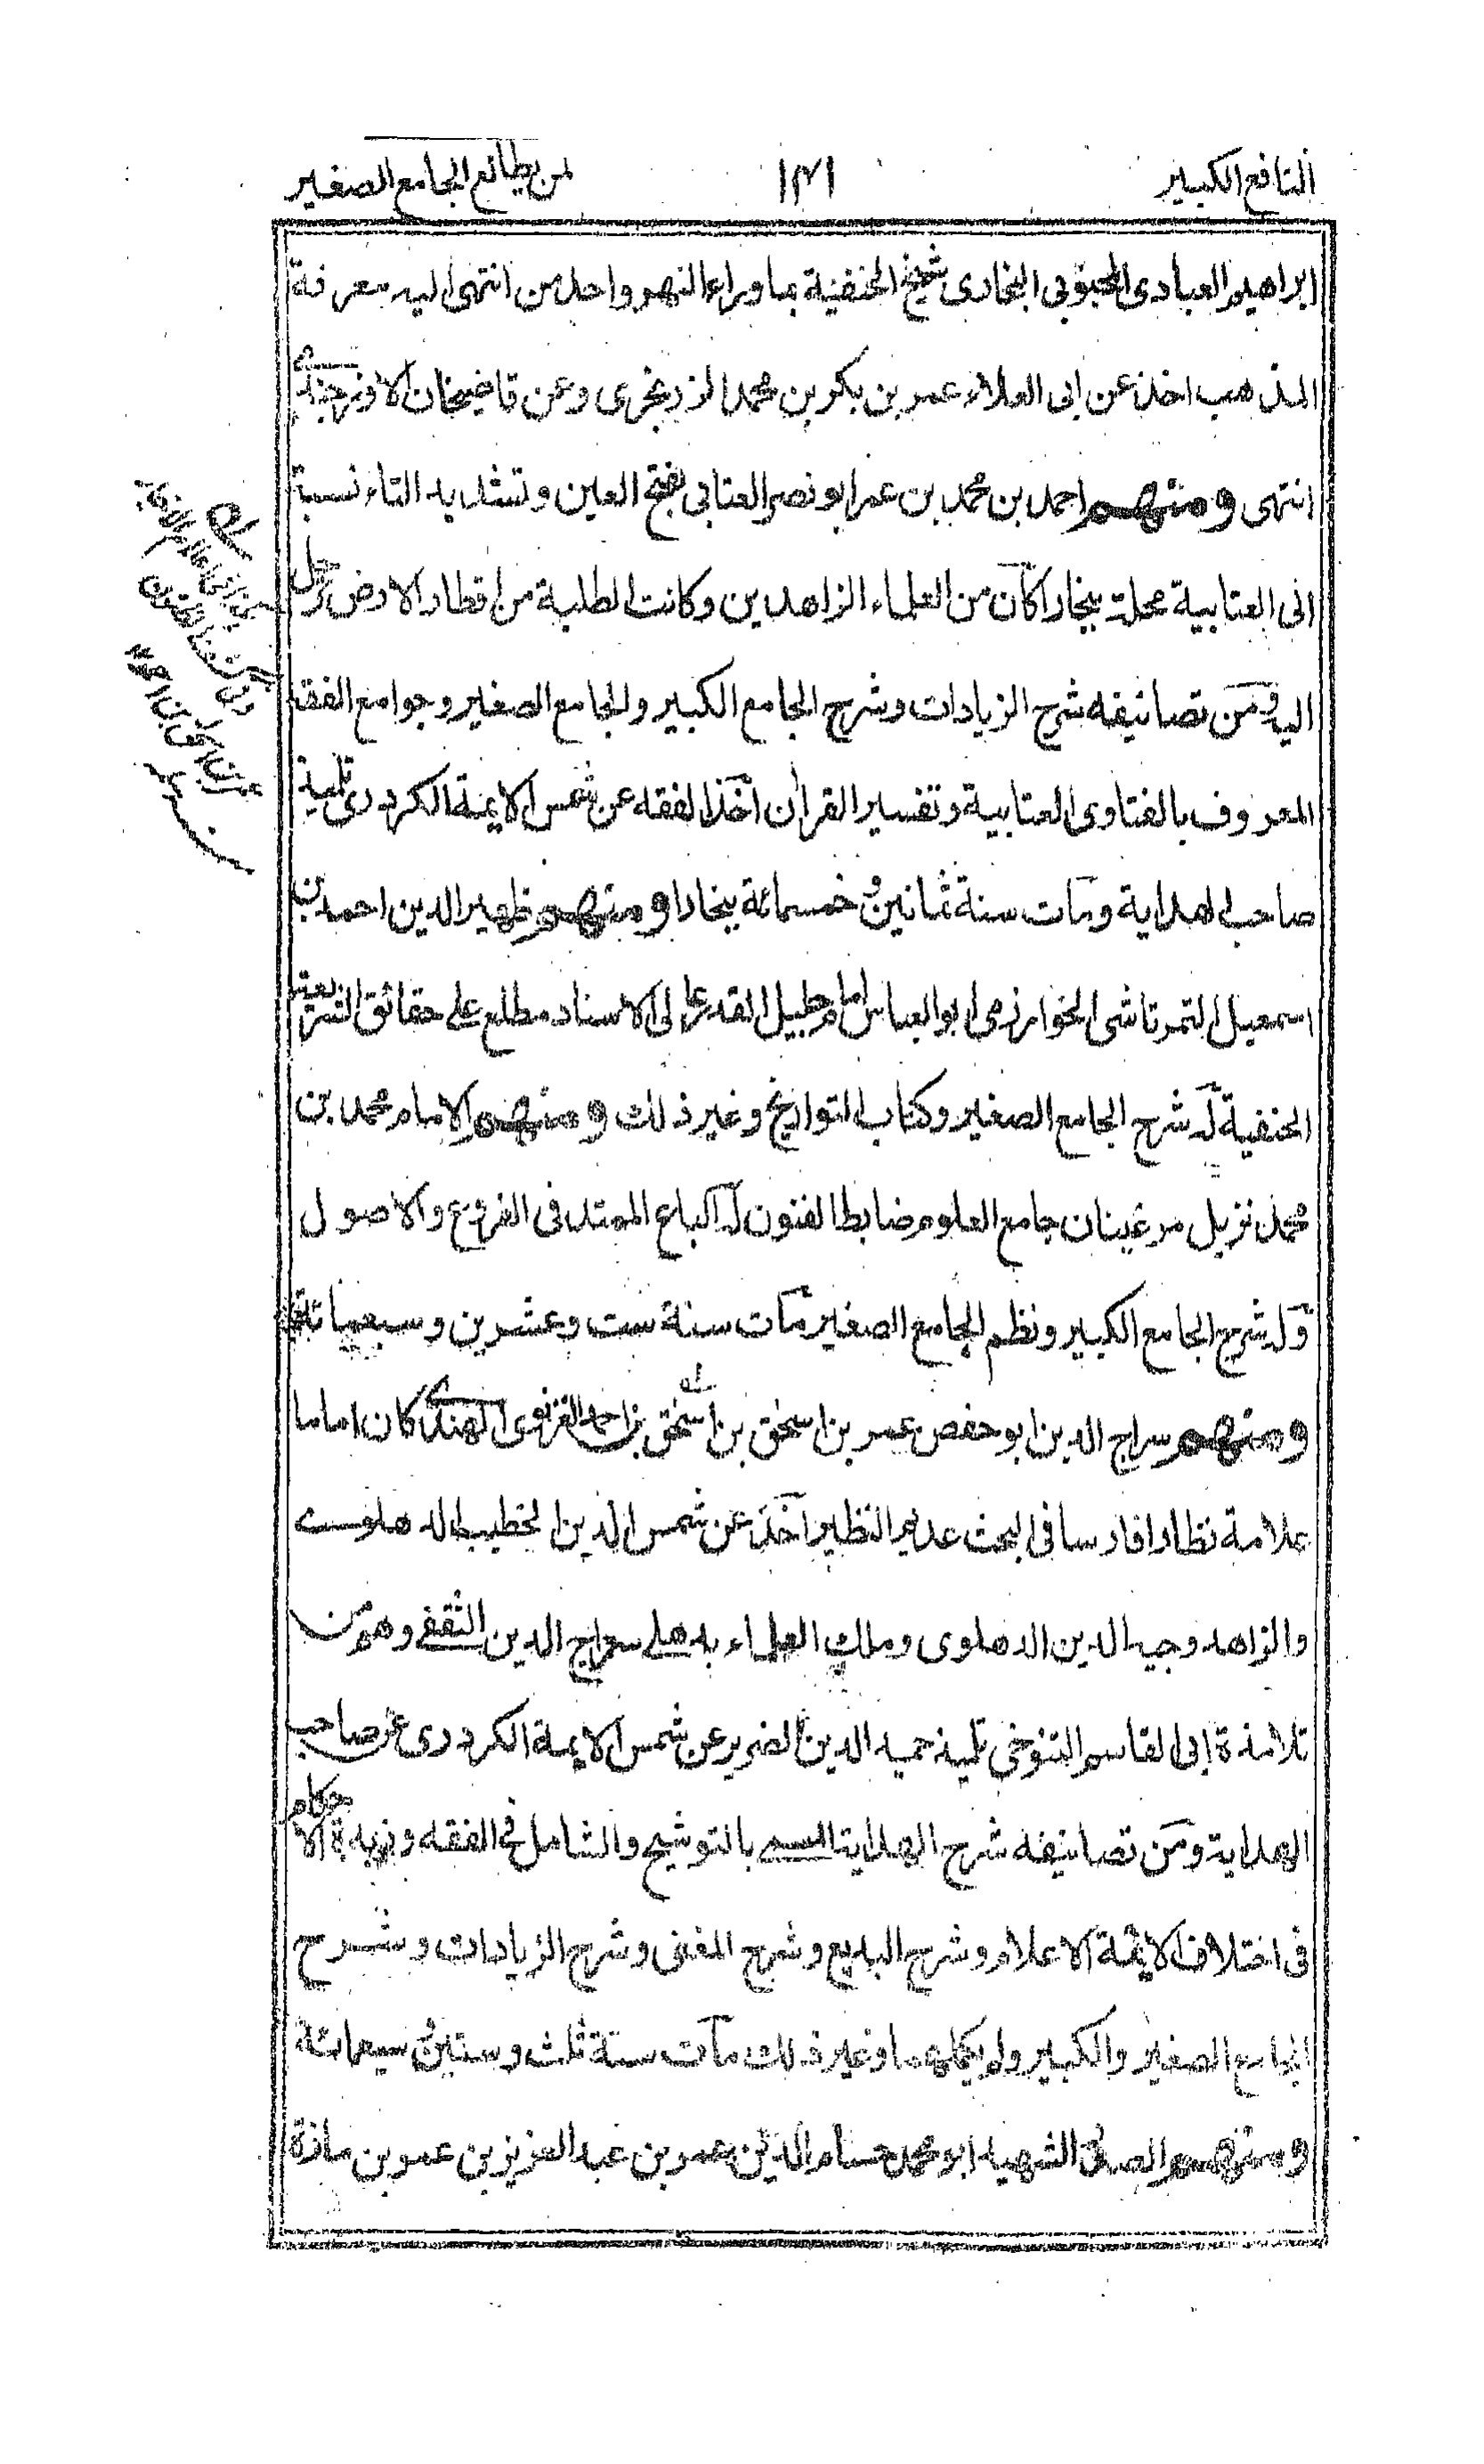 النافع الكبير
لمن يطالع الجامع الصغير
ابراهيم العبادى المحبوبى البخارى شيخ الحنفية بماوراء النهر واحد من انتهى اليه معرفة
المذهب اخذ عن ابى العلاء عمر بن بكر بن محمد الزرنجرى وعن قاضيخان الاوزجندى
انتهى ومنهم احمد بن محمد بن عمر ابو نصر العتابى بفتح العين وتشديد التاء نسبة
الى العتابية محلة ببخارا كان من العلماء الزاهدين وكانت الطلبة من اقطار الارض ترحل
اليه ومن تصانيفه شرح الزيادات وشرح الجامع الكبير والجامع الصغير وجوامع الفقه
المعروف بالفتاوى العتابية وتفسير القرآن اخذ الفقه عن شمس الايمة الكردرى تلميذ
صاحب الهداية ومات سنة ثمانين وخمسمائة ببخارا ومنهم ظهير الدين احمد بن
اسمعيل التمرتاشى الخوارزمى ابو العباس امام جليل القدر عالى الاسناد مطلع على حقائق الشريعة
الحنفية له شرح الجامع الصغير وكتاب التواريخ وغير ذلك ومنهم الامام محمد بن
محمد نزيل مرغينان جامع العلوم ضابط الفنون له الباع الممتد فى الفروع والاصول
وله شرح الجامع الكبير ونظم الجامع الصغير مات سنة ست وعشرين وسبعمائة
ومنهم سراج الدين ابو حفص عمر بن اسحق بن احمد الغزنوى الهندى كان اماما
علامة نظارا فارسا فى البحث عديم النظير اخذ عن شمس الدين الخطيب الدهلوى
والزاهد وجيه الدين الدهلوى وملك العلماء بدهلى سراج الدين الثقفى وهم من
تلامذة ابى القاسم التنوخى تلميذ حميد الدين الضرير عن شمس الايمة الكردرى عن صاحب
الهداية ومن تصانيفه شرح الهداية المسمى بالتوشيح والشامل فى الفقه وزبدة الاحكام
فى اختلاف الائمة الاعلام وشرح البديع وشرح المغنى وشرح الزيادات وشرح
الجامع الصغير والكبير ولم يكملهما وغير ذلك مات سنة ثلث وستين وسبعمائة
ومنهم الصدر الشهيد ابو محمد حسام الدين عمر بن عبد العزيز بن عمر بن مازة